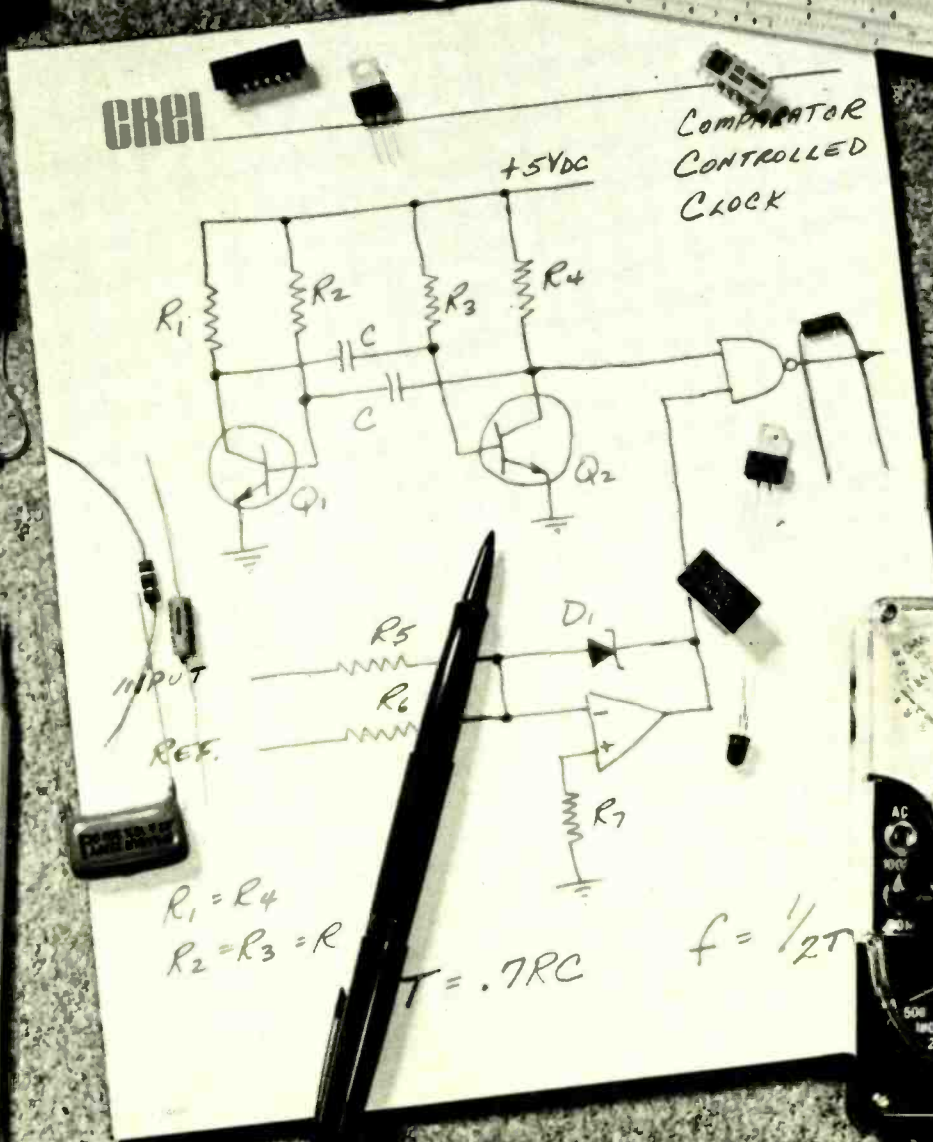 CREI
COMPARATOR
CONTROLLED
CLOCK
+5VDC
R1
R2
R3
R4
C
C
Q1
Q2
D1
R5
INPUT
R6
REF.
-
+
R7
R1 = R4
R2 = R3 = R
T = .7RC
f = 1/2T
AC